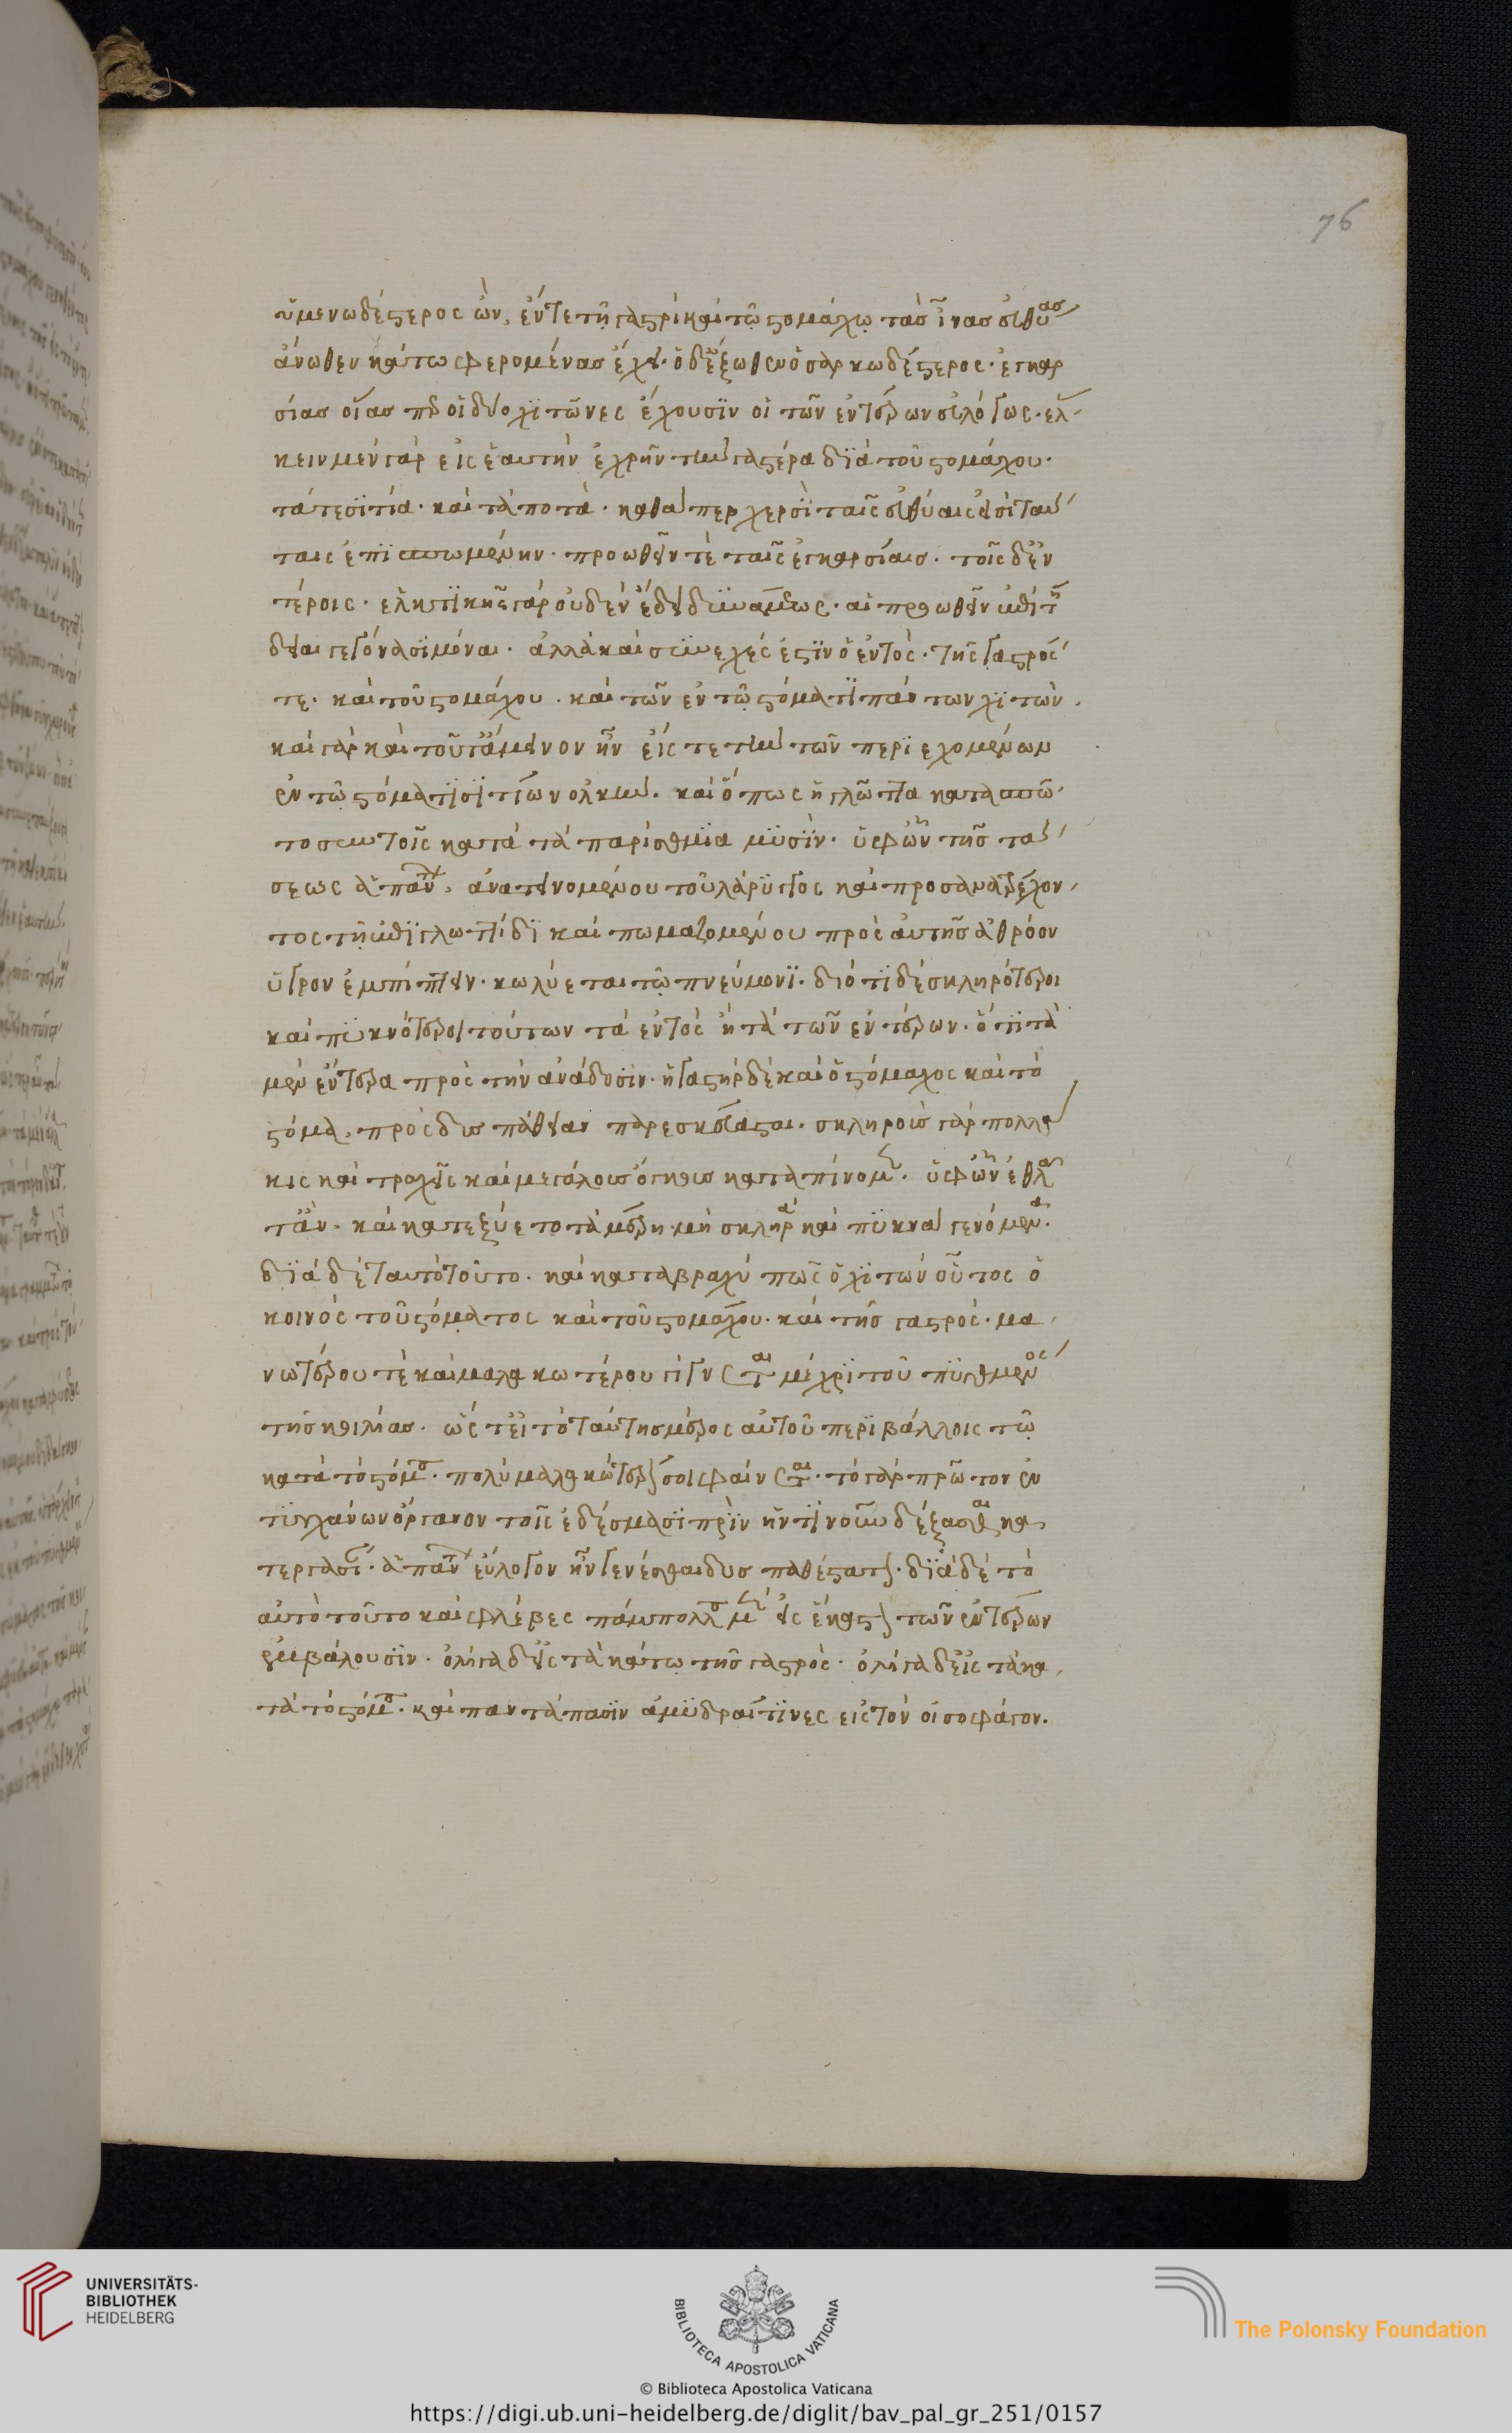 76
ὑμενωδέστερος ὢν, ἔν τε τῇ γαστρὶ καὶ τῷ στομάχῳ τὰς ἶνας εὐθείας
ἄνωθεν κάτω φερομένας ἔχει· ὁ δ' ἔξωθεν ὁ σαρκωδέστερος· ἐγκαρ
σίας οἵας περ οἱ δύο χιτῶνες ἔχουσιν οἱ τῶν ἐντέρων εὐλόγως· ἕλ
κειν μὲν γὰρ εἰς ἑαυτὴν ἐχρῆν τὴν γαστέρα διὰ τοῦ στομάχου·
τά τε σιτία· καὶ τὰ ποτὰ· καθάπερ χερσὶ ταῖς εὐθείαις ἰσὶ ταύ
ταις ἐπισπωμένην· προωθεῖν τὲ ταῖς ἐγκαρσίαις· τοῖς δ' ἐν
τέροις· ἑλκτικῆς γὰρ οὐδὲν ἔδει δυνάμεως· αἱ πρὸς ὠθεῖν ἐπιτή
δειαι γεγόνασι μόναι· ἀλλὰ καὶ συνεχές ἐστιν ὁ ἐντὸς· τῆς γαστρός
τε· καὶ τοῦ στομάχου· καὶ τῶν ἐν τῷ στόματι πάντων χιτών·
καὶ γὰρ καὶ τοῦτ' ἄμεινον ἦν εἴς τε τὴν τῶν περιεχομένων
ἐν τῷ στόματι σιτίων ὁλκὴν· καὶ ὅπως ἡ γλῶττα κατασπῷ
το σὺν τοῖς κατὰ τὰ παρίσθμια μυσίν· ὑφ' ὧν τῆς τά
σεως ἅπαν, ἀνατεινομένου τοῦ λάρυγγος καὶ προσανατρέχον
τος τῇ ἐπιγλωττίδι καὶ πωμαζομένου πρὸς αὐτῆς ἀθρόον
ὑγρον ἐμπίπτειν· κωλύεται τῷ πνεύμονι· διότι δὲ σκληρότεροι
καὶ πυκνότεροι τούτων τὰ ἐντὸς ἢ τὰ τῶν ἐντέρων· ὅτι τὰ
μὲν ἔντερα πρὸς τὴν ἀνάδοσιν· ἡ γαστὴρ δὲ καὶ ὁ στόμαχος καὶ τὸ
στόμα, πρὸς δυσπάθειαν παρεσκεύασται· σκληροῖς γὰρ πολλά
κις καὶ τραχεῖς καὶ μεγάλοις ὄγκοις καταπίνομεν· ὑφ' ὧν ἐθλᾶ
τ' ἂν· καὶ κατεξύετο τὰ μέρη μὴ σκληρὰ καὶ πυκνὰ γενόμενα·
διὰ δὲ ταυτὸ τοῦτο· καὶ κατὰ βραχύ πως ὁ χιτών οὗτος ὁ
κοινὸς τοῦ στόματος καὶ τοῦ στομάχου· καὶ τῆς γαστρὸς· μα
νωτέρου τὲ καὶ μαλακωτέρου γίγνεται μέχρι τοῦ πυθμένος
τῆς κοιλίας· ὥς τ' εἰ τὸ ταύτης μέρος αὐτοῦ περιβάλλοις τῷ
κατὰ τὸ στόμα· πολὺ μαλακώτερον σοι φαίνεται· τὸ γὰρ πρῶτον ἐν
τυγχάνων ὄργανον τοῖς ἐδέσμασι πρὶν ἥντινοῦν δέξασθαι κα
τεργασίαν· ἅπαν εὔλογον ἦν γενέσθαι δυσπαθέστατον· διὰ δὲ τὸ
αὐτὸ τοῦτο καὶ φλέβες πάμπολλοι μὲν εἰς ἕκαστον τῶν ἐντέρων
ἐμβάλουσιν· ὀλίγα δ' εἰς τὰ κάτω τῆς γαστρὸς· ὀλίγα δ' εἰς τὰ κα
τὰ τὸ στόμα· καὶ παντάπασιν ἀμυδραί τινες εἰς τὸν οἰσοφάγον.
UNIVERSITÄTS-
BIBLIOTHEK
HEIDELBERG
BIBLIOTECA APOSTOLICA VATICANA
The Polonsky Foundation
© Biblioteca Apostolica Vaticana
https://digi.ub.uni-heidelberg.de/diglit/bav_pal_gr_251/0157